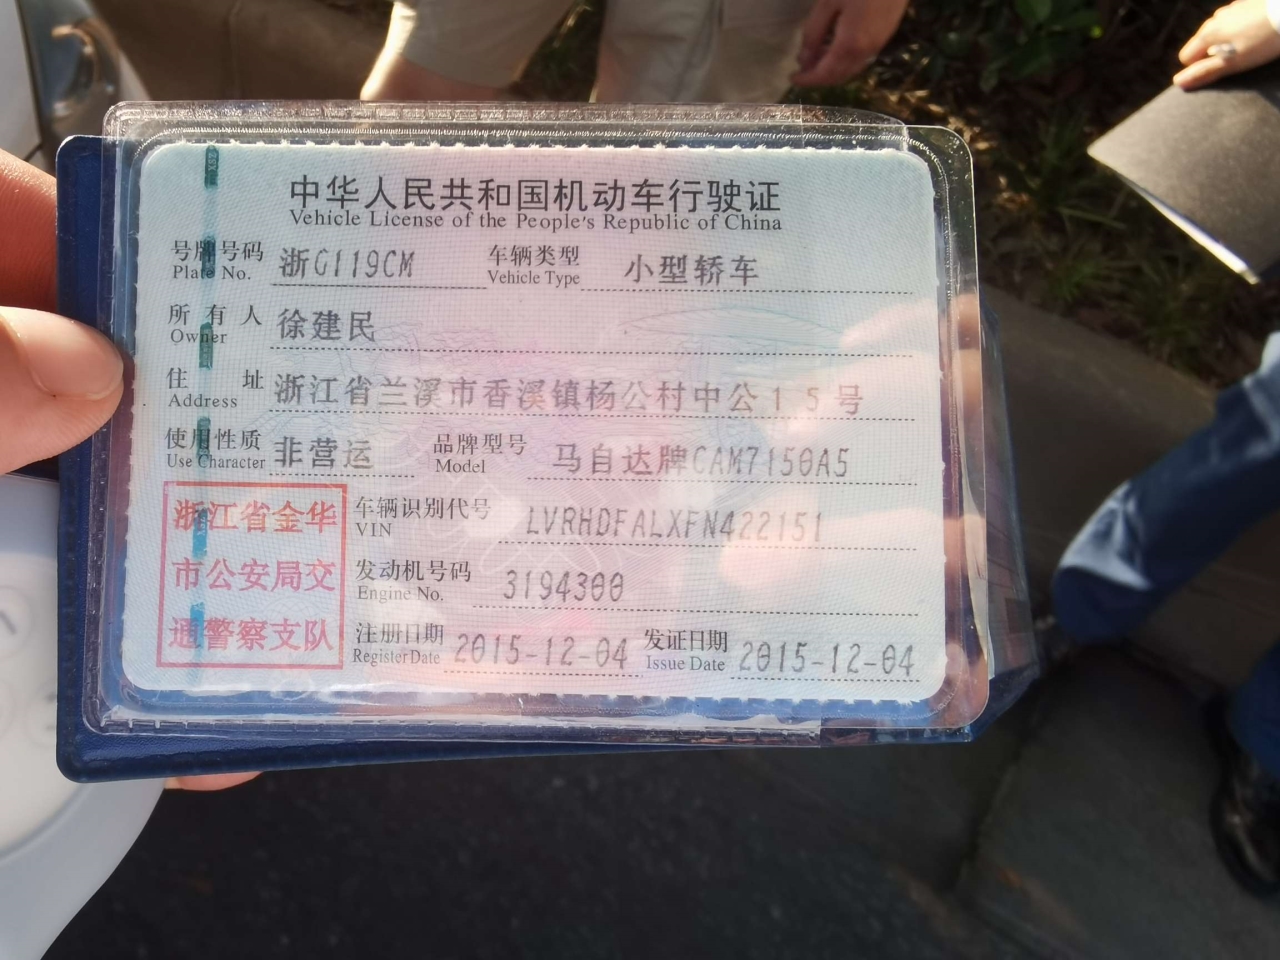 中华人民共和国机动车行驶证
Vehicle License of the People's Republic of China
号牌号码 浙G119CM 车辆类型 小型轿车
Plate No. Vehicle Type
所有人 徐建民
Owner
住址 浙江省兰溪市香溪镇杨公村中公15号
Address
使用性质 非营运 品牌型号 马自达牌CAM7150A5
Use Character Model
浙江省金华
市公安局交
通警察支队
车辆识别代号 LVRHDFALXFN422151
VIN
发动机号码 3194300
Engine No.
注册日期 2015-12-04 发证日期 2015-12-04
Register Date Issue Date